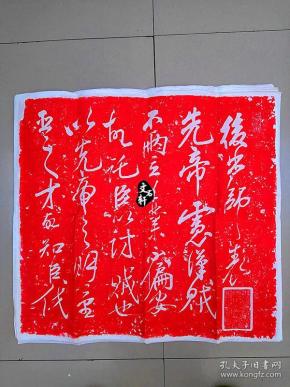 後出師表
先帝慮漢賊
不兩立王業不偏安
故託臣以討賊也
以先帝之明量
臣之才故知臣伐
文不轩
孔夫子旧书网